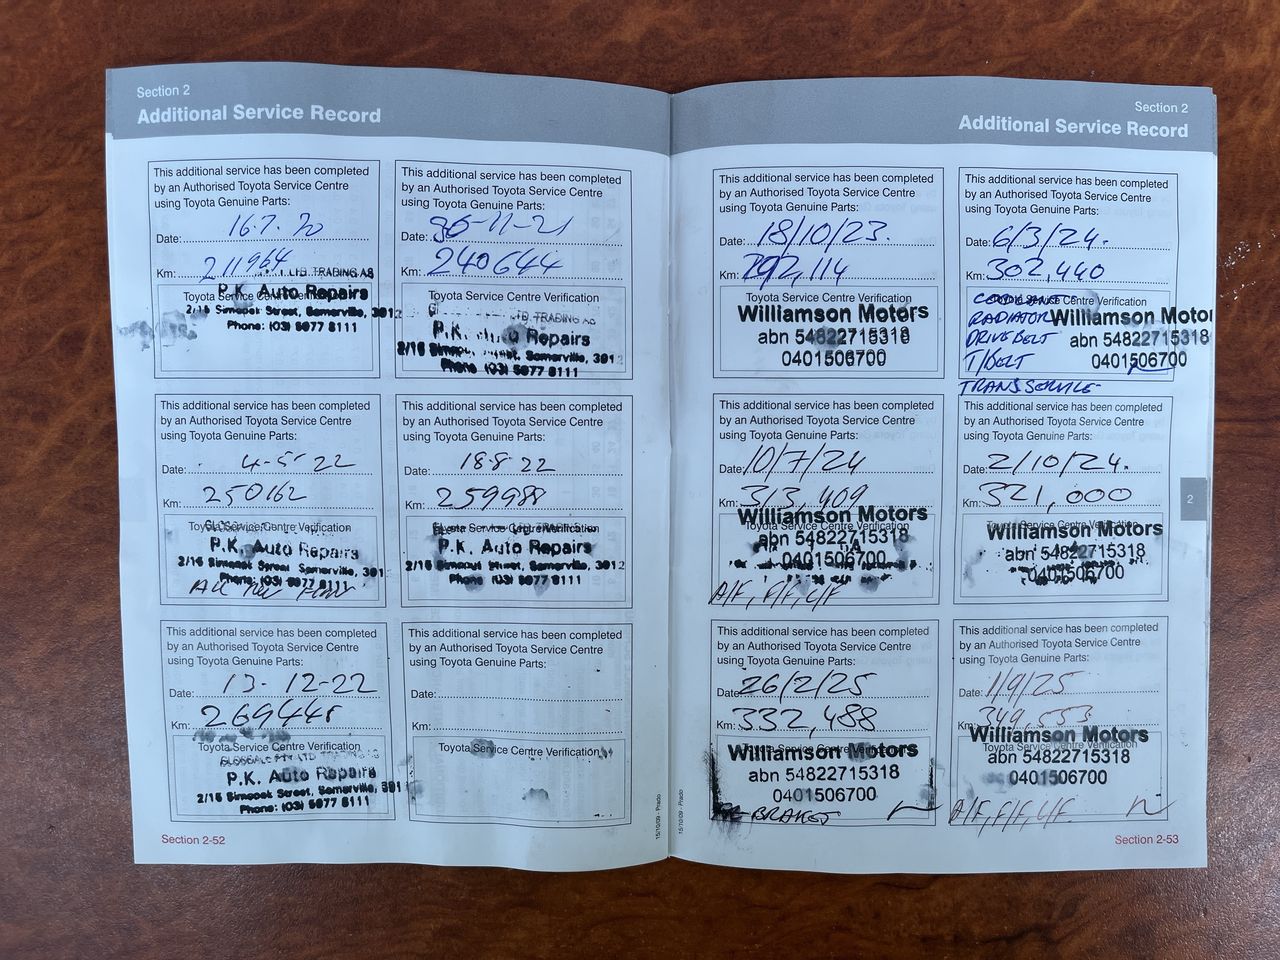 Section 2
Additional Service Record
This additional service has been completed
by an Authorised Toyota Service Centre
using Toyota Genuine Parts:
Date: 16.7.20
Km: 211964
Toyota Service Centre Verification
LTD. TRADING AS
P.K. Auto Repairs
2/15 Simcock Street, Somerville, 3912
Phone: (03) 5977 8111
This additional service has been completed
by an Authorised Toyota Service Centre
using Toyota Genuine Parts:
Date: 30-11-21
Km: 240644
Toyota Service Centre Verification
LTD. TRADING AS
P.K. Auto Repairs
2/15 Street, Somerville, 3912
Phone (03) 5977 8111
This additional service has been completed
by an Authorised Toyota Service Centre
using Toyota Genuine Parts:
Date: 4-5-22
Km: 250162
Toyota Service Centre Verification
P.K. Auto Repairs
2/15 Simcock Street Somerville, 391
Phone: (03) 5977 8111
This additional service has been completed
by an Authorised Toyota Service Centre
using Toyota Genuine Parts:
Date: 18-8-22
Km: 259988
Toyota Service Centre Verification
P.K. Auto Repairs
2/15 Simcock Street, Somerville, 3912
Phone (03) 5977 8111
This additional service has been completed
by an Authorised Toyota Service Centre
using Toyota Genuine Parts:
Date: 13-12-22
Km: 269448
Toyota Service Centre Verification
P.K. Auto Repairs
2/15 Simcock Street, Somerville, 391
Phone: (03) 5977 8111
This additional service has been completed
by an Authorised Toyota Service Centre
using Toyota Genuine Parts:
Date:
Km:
Toyota Service Centre Verification
Section 2-52
15/10/09 - Prado
Section 2
Additional Service Record
This additional service has been completed
by an Authorised Toyota Service Centre
using Toyota Genuine Parts:
Date: 18/10/23.
Km: 292,114
Toyota Service Centre Verification
Williamson Motors
abn 54822715318
0401506700
This additional service has been completed
by an Authorised Toyota Service Centre
using Toyota Genuine Parts:
Date: 6/3/24.
Km: 302,440
Toyota Service Centre Verification
RADIATOR
DRIVE BELT
T/BELT
TRANS SERVICE
Williamson Motor
abn 54822715318
0401506700
This additional service has been completed
by an Authorised Toyota Service Centre
using Toyota Genuine Parts:
Date: 10/7/24
Km: 313,409
Toyota Service Centre Verification
Williamson Motors
abn 54822715318
0401506700
A/F, F/F, C/F
This additional service has been completed
by an Authorised Toyota Service Centre
using Toyota Genuine Parts:
Date: 2/10/24.
Km: 321,000
Toyota Service Centre Verification
Williamson Motors
abn 54822715318
0401506700
2
This additional service has been completed
by an Authorised Toyota Service Centre
using Toyota Genuine Parts:
Date: 26/2/25
Km: 332,488
Toyota Service Centre Verification
Williamson Motors
abn 54822715318
0401506700
BRAKES
This additional service has been completed
by an Authorised Toyota Service Centre
using Toyota Genuine Parts:
Date: 1/9/25
Km: 349,553
Toyota Service Centre Verification
Williamson Motors
abn 54822715318
0401506700
A/F, F/F, C/F
15/10/09 - Prado
Section 2-53